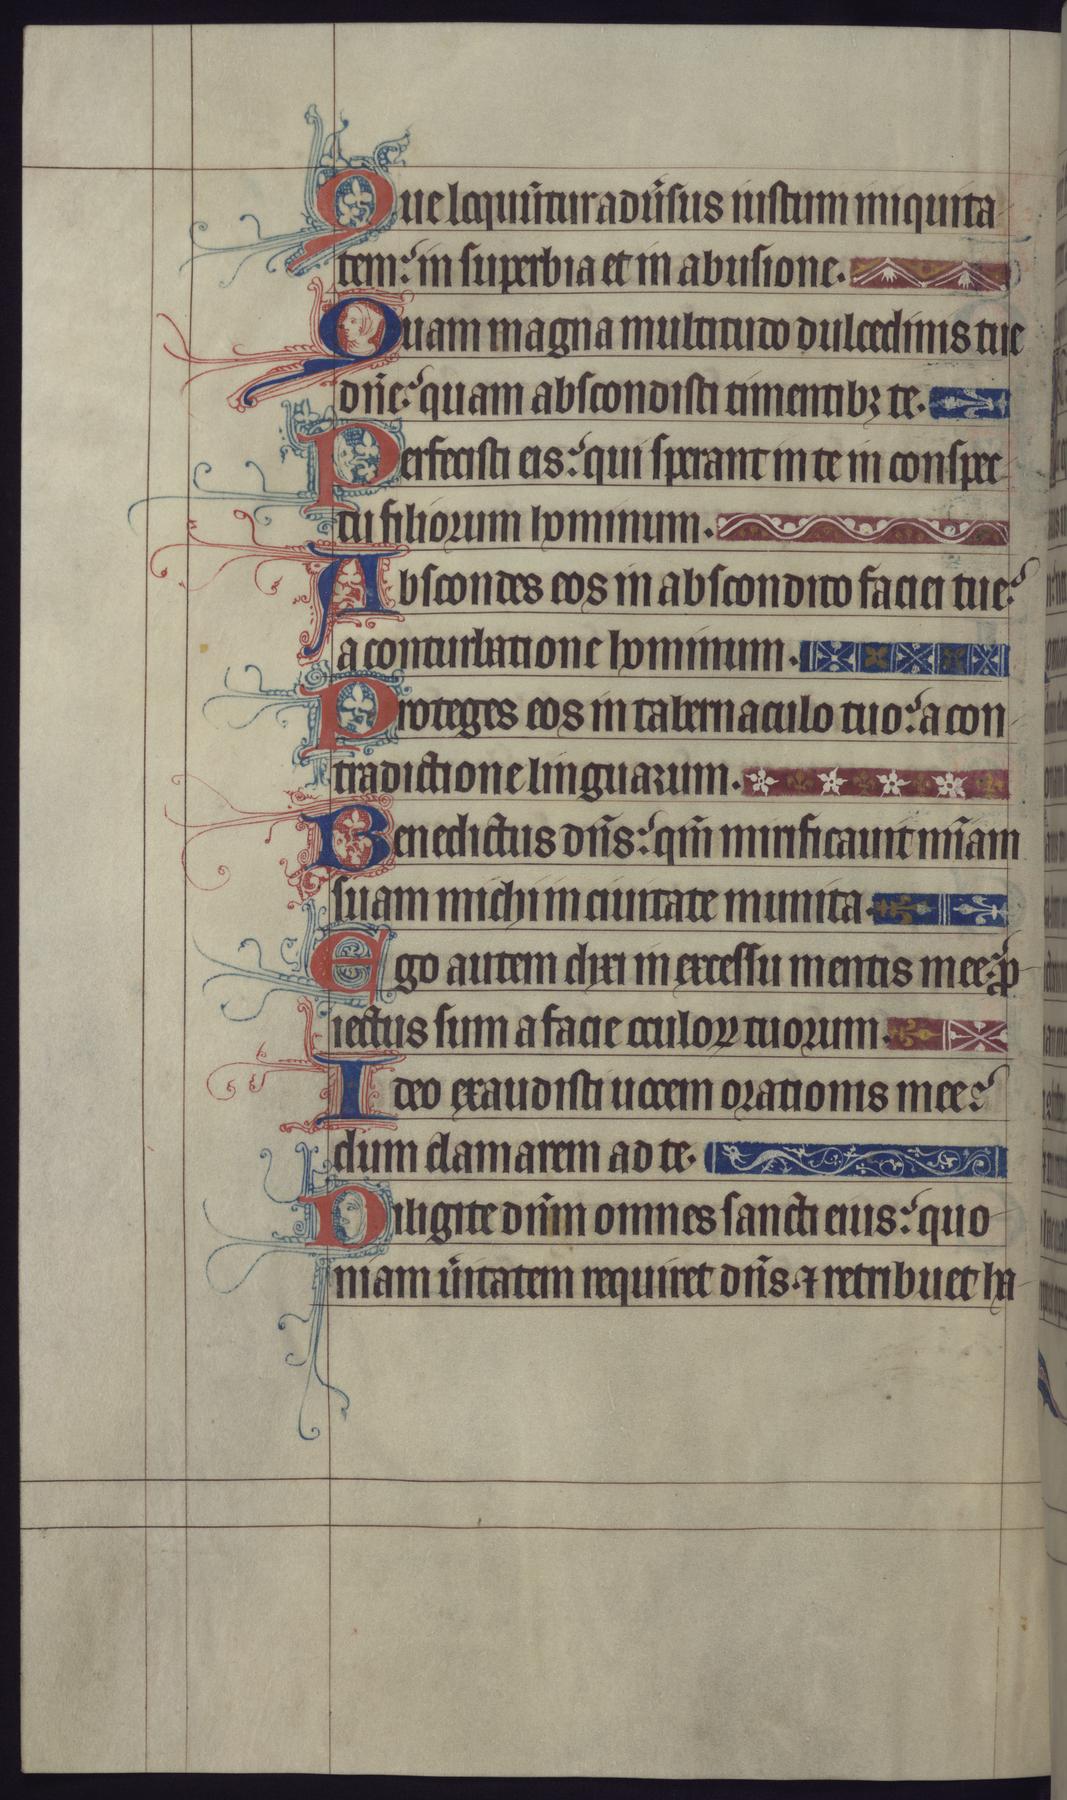 Que loquūtur adūsus iustum iniquita
tem: in superbia et in abusione.
Quam magna multitudo dulcedinis tue
dn̄e: quam abscondisti timentibꝫ te.
Perfecisti eis: qui sperant in te in conspec
tu filiorum hominum.
Abscondes eos in abscondito faciei tue:
a conturbatione hominum.
Proteges eos in tabernaculo tuo: a con
tradictione linguarum.
Benedictus dn̄s: qm̄ mirificauit mīam
suam michi in ciuitate munita.
Ego autem dixi in excessu mentis mee: ꝓ
iectus sum a facie oculoꝝ tuorum.
Ideo exaudisti uocem orationis mee:
dum clamarem ad te.
Diligite dn̄m omnes sancti eius: quo
niam ūitatem requiret dn̄s. ⁊ retribuet ha